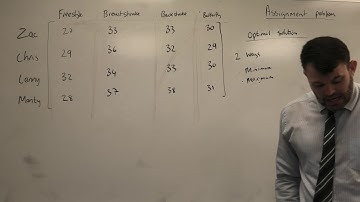 Freestyle Breaststroke Backstroke Butterfly
Zac 27 33 33 30
Chris 29 36 32 29
Lanny 32 34 33 30
Monty 28 37 38 31
Assignment problem
Optimal solution
2 ways
Minimum
Maximum